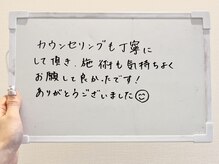 カウンセリングも丁寧に
して頂き、施術も気持ちよく
お願して良かったです!
ありがとうございました